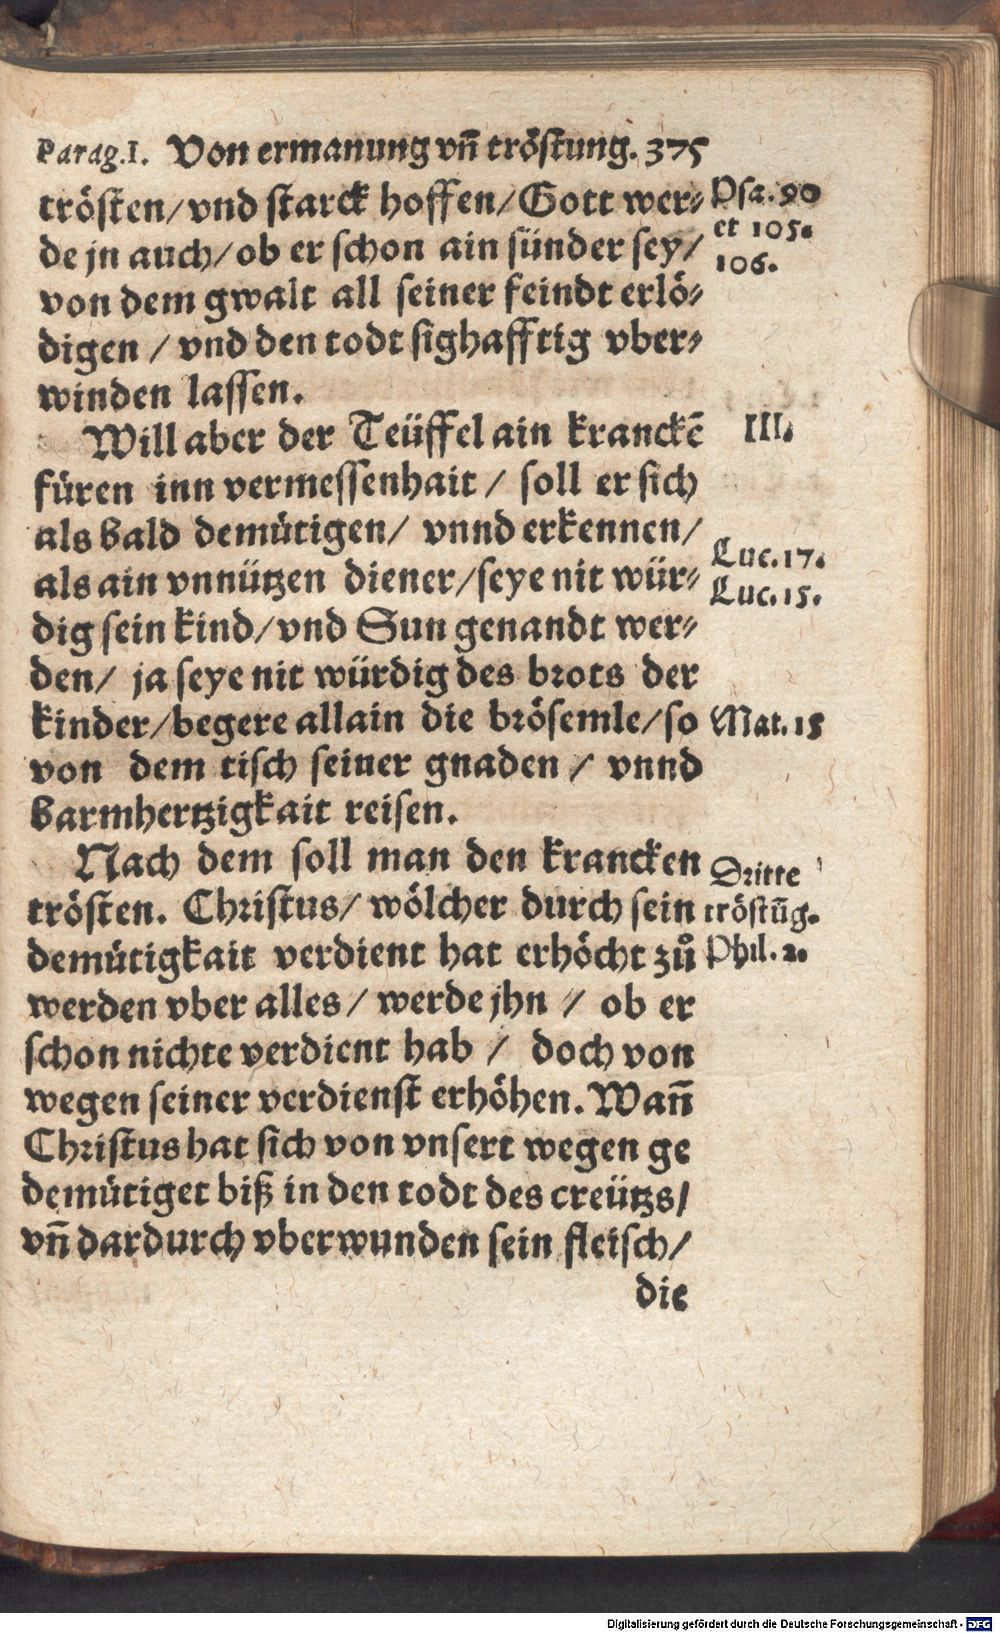 Parag.I. Von ermanung vñ tröstung. 375
trösten/ vnd starck hoffen/ Gott wer⸗
de jn auch/ ob er schon ain sünder sey/
von dem gwalt all seiner feindt erlö⸗
digen / vnd den todt sighafftig vber⸗
winden lassen.
Psa. 90
et 105.
106.
Will aber der Teüffel ain kranckē
füren inn vermessenhait / soll er sich
als bald demütigen/ vnnd erkennen/
als ain vnnützen diener/ seye nit wür⸗
dig sein kind/ vnd Sun genandt wer⸗
den/ ja seye nit würdig des brots der
kinder/ begere allain die brösemle/ so
von dem tisch seiner gnaden / vnnd
barmhertzigkait reisen.
III.
Luc. 17.
Luc. 15.
Mat. 15
Nach dem soll man den krancken
trösten. Christus/ wölcher durch sein
demütigkait verdient hat erhöcht zů
werden vber alles/ werde jhn / ob er
schon nichte verdient hab / doch von
wegen seiner verdienst erhöhen. Wañ
Christus hat sich von vnsert wegen ge
demütiget biß in den todt des creützs/
vñ dardurch vberwunden sein fleisch/
die
Dritte
tröstũg.
Phil. 2.
Digitalisierung gefördert durch die Deutsche Forschungsgemeinschaft - DFG